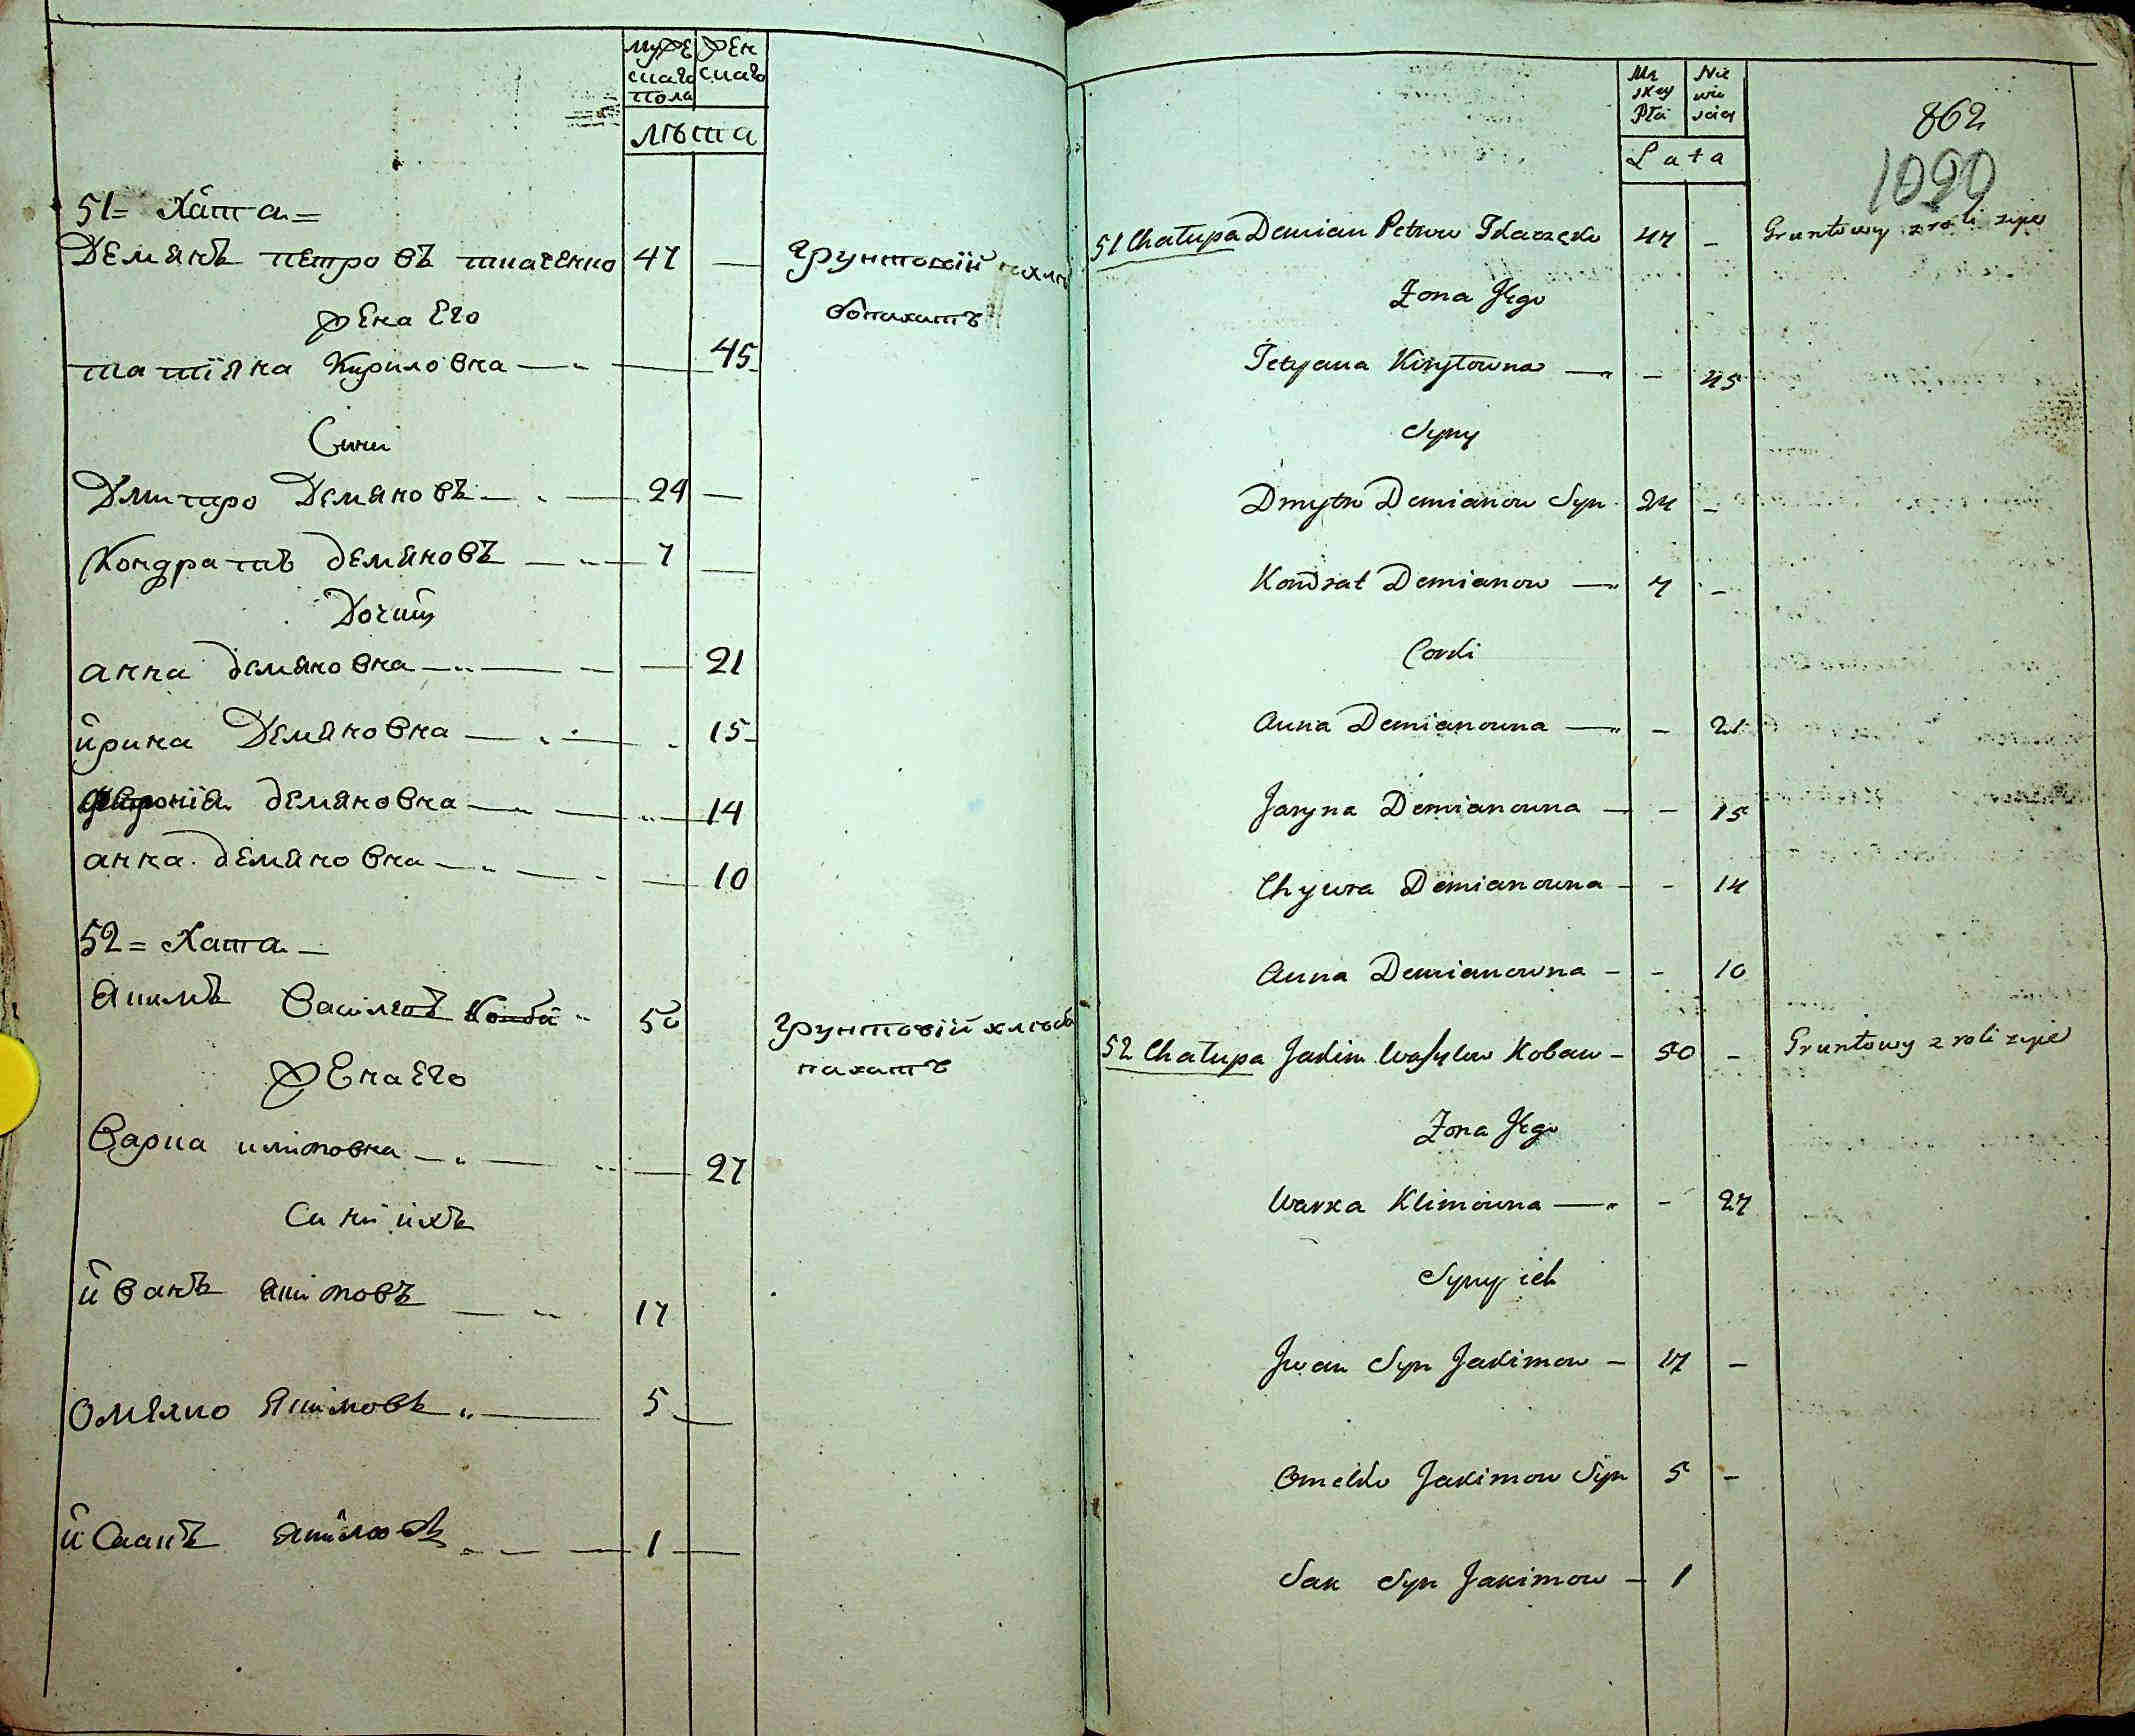 муже
скаго
пола
жен
скаго
лѣта
51= Хата =
Демянъ петровъ ткаченко 47 — грунтовій хлѣ
жена Его бопахатъ
татіяна Кириловна — " — 45
Сини
Дмитро Демяновъ — " — 24 —
Кондратъ демяновъ — " — 7 —
Дочкы
анна демяновна — " — — 21
йрина Демяновна — " — 15
демяновна — " — 14
анна демяновна — " — — 10
52= Хата —
Якимъ Василевъ Коиба " 50 грунтовій хлѣба
жена Его пахатъ
Варка климовна — " — 27
Сини ихъ
йванъ якимовъ — " 17
Омелко Якимовъ " — 5 —
йсаакъ якимовъ — " — 1 —
Mę
skey
Płci
Nie
wie
sciey
Lata
862
1090
51 Chałupa Demian Petrow Tkaczeko 47 — Gruntowy z roli zyie
Zona Jego
Tetyana Kiryłowna — " — 45
Syny
Dmytro Demianow Syn 24 —
Kondrat Demianow — " 7 —
Corki
Anna Demianowna — " — 21
Jaryna Demianowna — — 15
Chywra Demianowna — — 14
Anna Demianowna — — 10
52 Chałupa Jakim Wasylow Kobaw — 50 — Gruntowy z roli zyie
Zona Jego
Warka Klimowna — " — 27
Syny ich
Jwan Syn Jakimow — 17 —
Omelko Jakimow Syn 5 —
Sak Syn Jakimow — 1